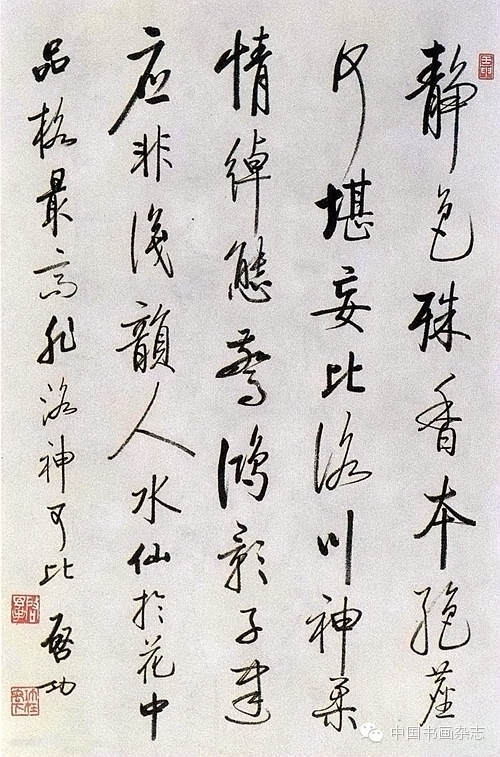 静色殊香本絕塵
何堪妄比洛川神柔
情綽態驚鴻影子建
应非淺韻人水仙於花中
品格最高非洛神可比 啓功
中国书画杂志